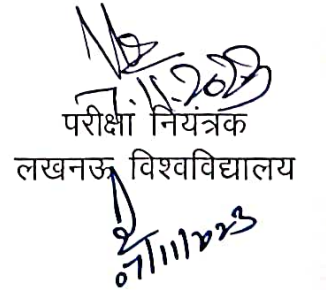 7.11.2023
परीक्षा नियंत्रक
लखनऊ विश्वविद्यालय
07/11/2023